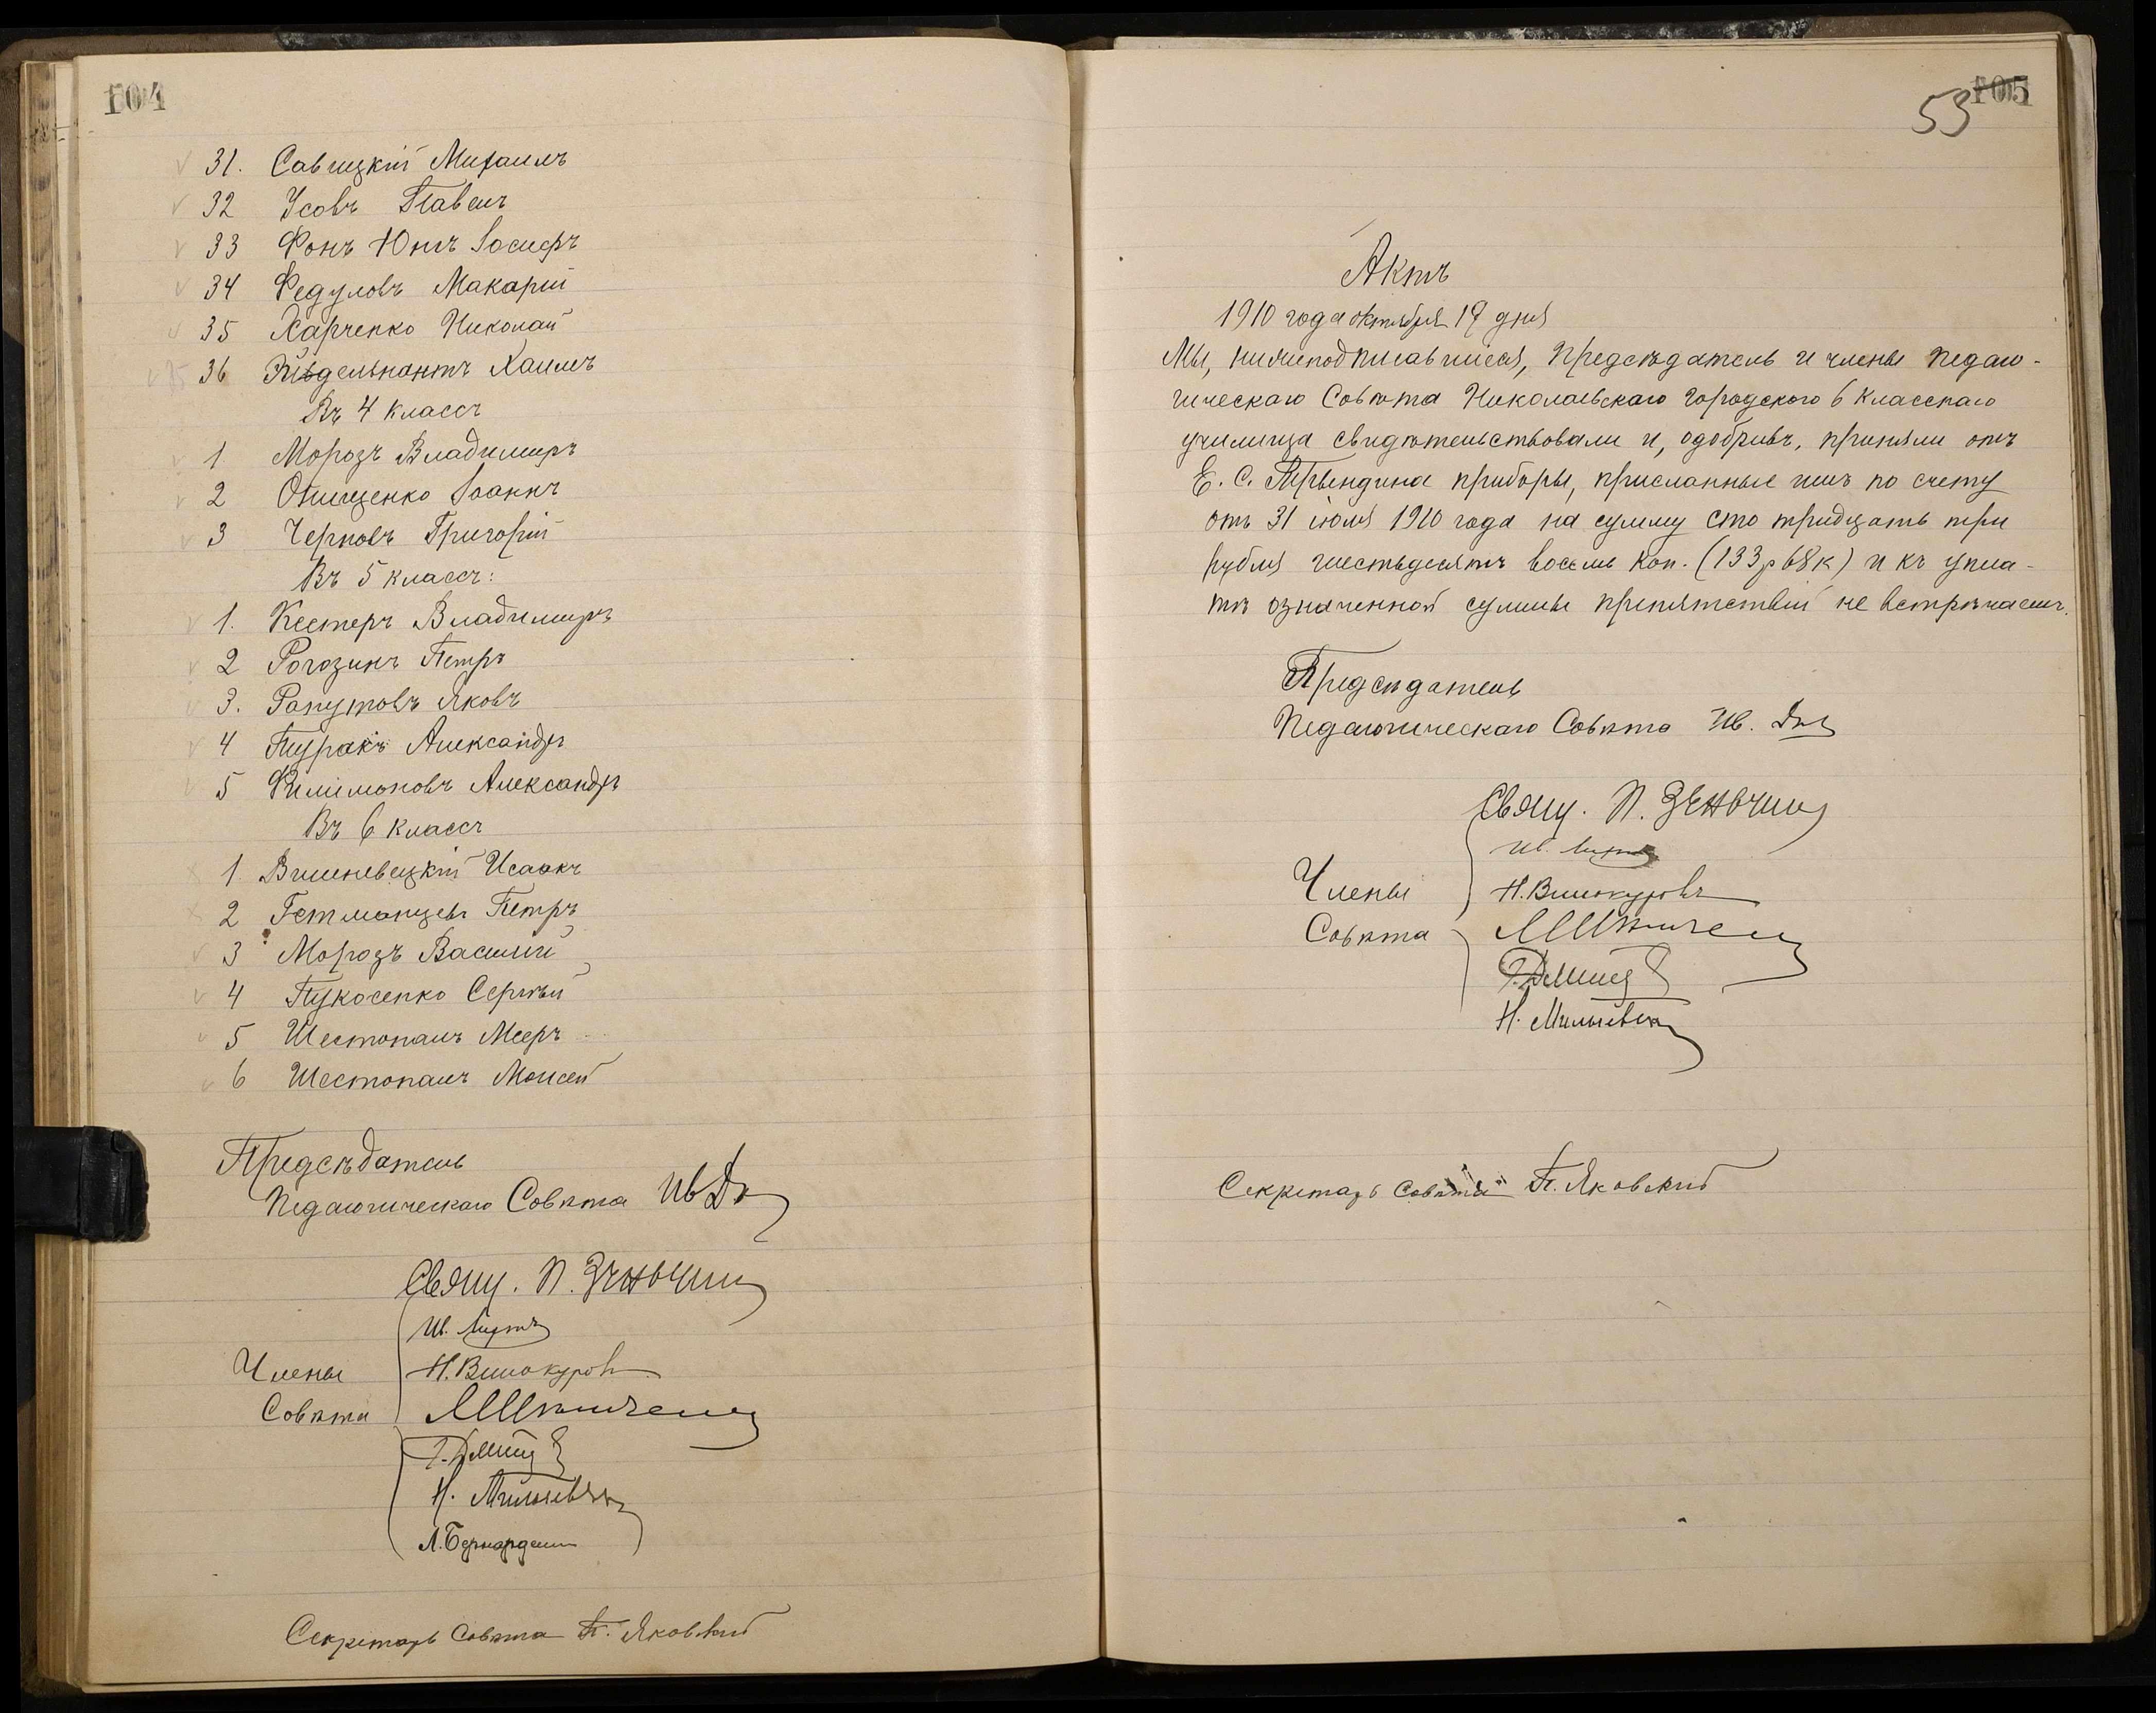 104
31. Савицкій Михаилъ
32 Усовъ Павелъ
33 Фонъ Юнгъ Іосифъ
34 Федуловъ Макарій
35 Харченко Николай
36 Хаимъ
Въ 4 классъ
1 Морозъ Владимиръ
2 Онищенко Іоаннъ
3 Черновъ Григорій
Въ 5 классъ:
1. Кестеръ Владимиръ
2 Рогозинъ Петръ
3. Рапутовъ Яковъ
4 Туракъ Александръ
5 Филимоновъ Александръ
Въ 6 классъ
1. Вишневецкій Исаакъ
2 Гетманцевъ Петръ
3 Морозъ Василій
4 Пукосенко Сергѣй
5 Шестопалъ Мееръ
6 Шестопалъ Моисей
Предсѣдатель
Педагогическаго Совѣта Ив
Свящ. П.
Ив.
Члены Н. Винокуровъ
Совѣта
Н.
Л.
Секретарь Совѣта П. Яковскій
105
53
Актъ
1910 года октября 19 дня
Мы, нижеподписавшіеся, Предсѣдатель и члены педаго-
гическаго Совѣта Николаевскаго городского 6 класснаго
училища свидѣтельствовали и, одобривъ, приняли отъ
Е. С. Трындина приборы, присланные имъ по счету
отъ 31 іюля 1910 года на сумму сто тридцать три
рубля шестьдесятъ восемь коп. (133 р 68 к) и къ упла-
тѣ означенной суммы препятствій не встрѣчаемъ.
Предсѣдатель
Педагогическаго Совѣта Ив.
Свящ. П.
Ив.
Члены Н. Винокуровъ
Совѣта
Н.
Секретарь Совѣта П. Яковскій